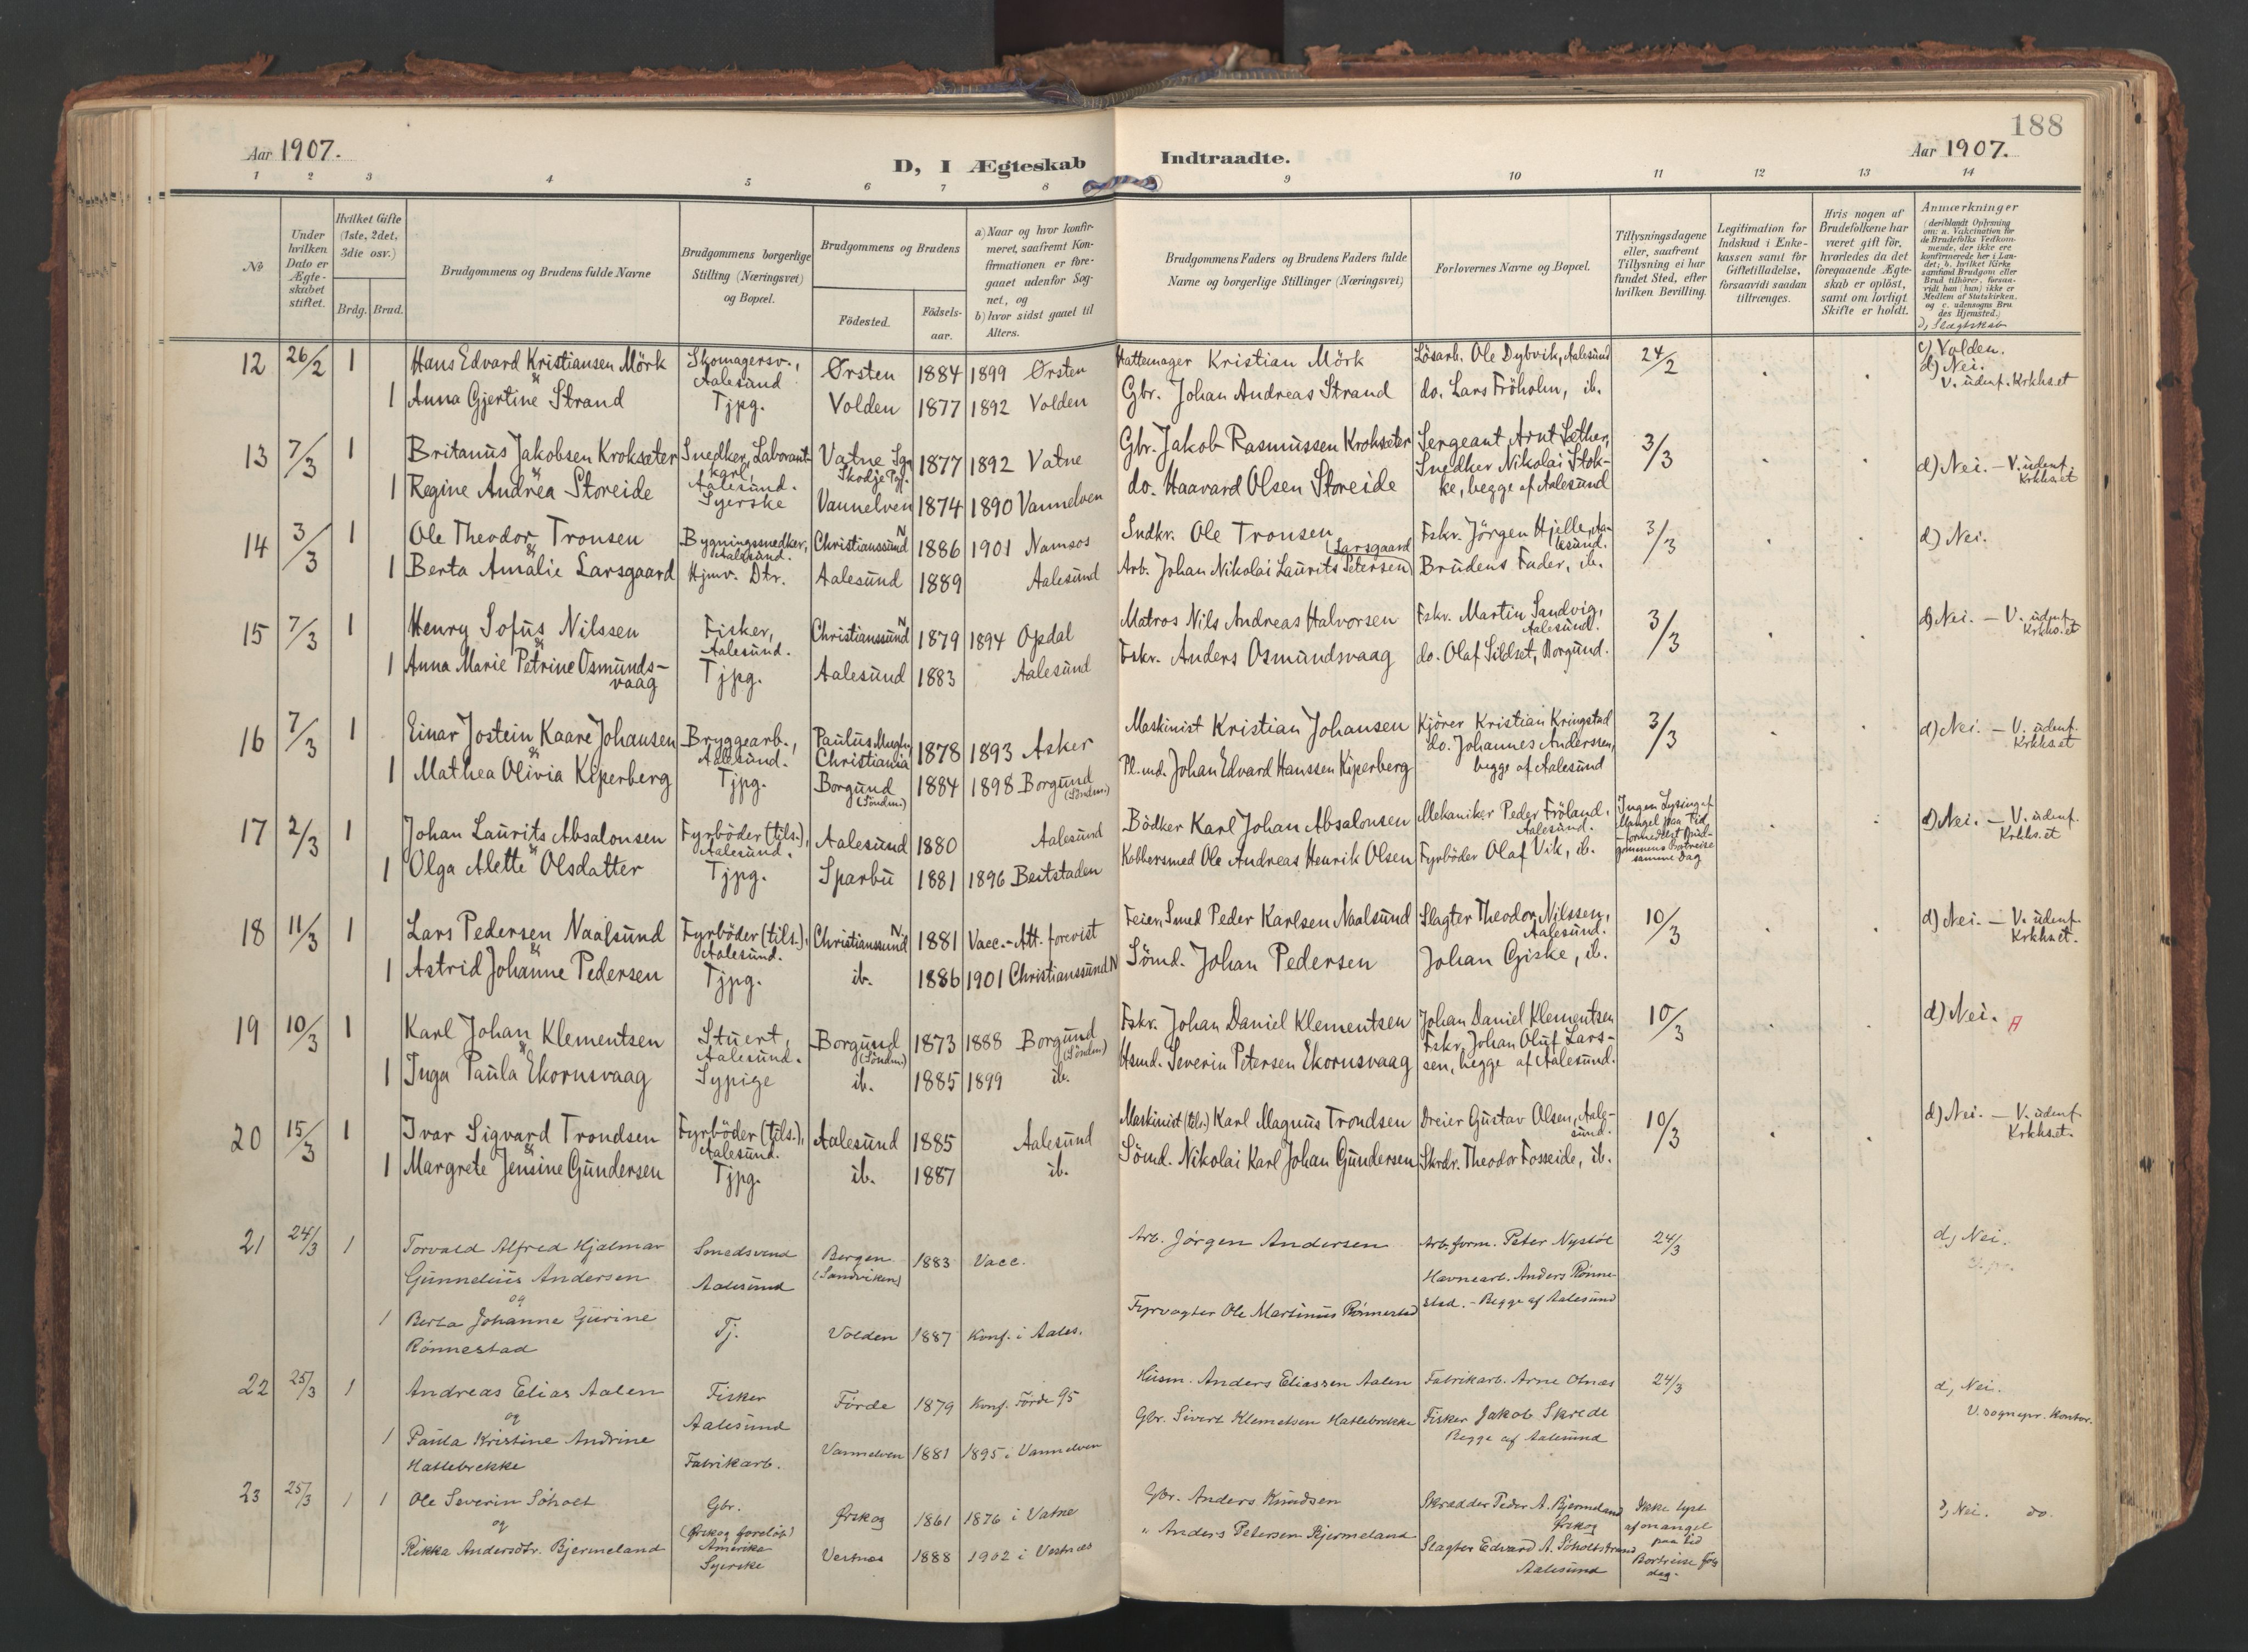 188
Aar 1907.
D, I Ægteskab Indtraadte.
Aar 1907.
1 2 3 4 5 6 7 8 9 10 11 12 13 14
№
Under hvilken Dato er Ægteskabet stiftet.
Hvilket Gifte (1ste, 2det, 3die osv.)
Brdg. Brud.
Brudgommens og Brudens fulde Navne
Brudgommens borgerlige Stilling (Næringsvei) og Bopæl.
Brudgommens og Brudens
Födested.
Födsels-aar.
a) Naar og hvor konfirmeret, saafremt Konfirmationen er foregaaet udenfor Sognet, og
b) hvor sidst gaaet til Alters.
Brudgommens Faders og Brudens Faders fulde Navne og borgerlige Stillinger (Næringsvei)
Forlovernes Navne og Bopæl.
Tillysningsdagene eller, saafremt Tillysning ei har fundet Sted, efter hvilken Bevilling.
Legitimation for Indskud i Enkekassen samt for Giftetilladelse, forsaavidt saadan tiltrænges.
Hvis nogen af Brudefolkene har været gift för, hvorledes da det foregaaende Ægteskab er oplöst, samt om lovligt Skifte er holdt.
Anmærkninger
(deriblandt Oplysning om: a. Vakcination for de Brudefolks Vedkommende, der ikke ere konfirmerede her i Landet; b. hvilket Kirkesamfund Brudgom eller Brud tilhörer, forsaavidt han (hun) ikke er Medlem af Statskirken, og c. udensogns Brudes Hjemsted.)
d, Slægtskab
12 26/2 1 Hans Edvard Kristiansen Mörk Skomagersv., Ørsten 1884 1899 Ørsten Hattemager Kristian Mörk Lösarb. Ole Dybvik, Aalesund 24/2 c) Volden.
& Aalesund d) Nei.
1 Anna Gjertine Strand Tjpg. Volden 1877 1892 Volden Gbr. Johan Andreas Strand do. Lars Fröholm, ib. V. udenf. Krkhs.et
13 7/3 1 Britanus Jakobsen Kroksæter Snedker, Laborant- Vatne Sgn 1877 1892 Vatne Gbr. Jakob Rasmussen Kroksæter Sergeant Arnt Sæther, 3/3
& karl, Skodje Pgj. Snedker Nikolai Stok- d) Nei. – V. udenf.
1 Regine Andrea Storeide Aalesund. do. Haavard Olsen Storeide ke, begge af Aalesund Krkhs.et
Syerske Vannelven 1874 1890 Vannelven
14 3/3 1 Ole Theodor Tronsen Bygningssnedker, Christianssund N 1886 1901 Namsos Sndkr. Ole Tronsen Fskr. Jörgen Hjelle, Aa- 3/3 d) Nei.
& Aalesund. (Larsgaard lesund.
1 Berta Amalie Larsgaard Hjmv. Dtr. Aalesund 1889 Aalesund Arb. Johan Nikolai Laurits Petersen) Brudens Fader, ib.
15 7/3 1 Henry Sofus Nilssen Fisker, Christianssund N 1879 1894 Opdal Matros Nils Andreas Halvorsen Fskr. Martin Sandvig, 3/3 d) Nei. – V. udenf.
& Aalesund. Aalesund. Krkhs.et
1 Anna Marie Petrine Osmunds- Tjpg. Aalesund 1883 Aalesund Fskr. Anders Osmundsvaag do. Olaf Sildset, Borgund.
vaag
16 7/3 1 Einar Jostein Kaare Johansen Bryggearb., Paulus Mugh 1878 1893 Asker Maskinist Kristian Johansen Kjörer Kristian Kringstad 3/3 d) Nei. – V. udenf.
& Aalesund. Christiania do. Johannes Anderssen, Krkhs.et
1 Mathea Olivia Kiperberg Tjpg. Borgund 1884 1898 Borgund Pl.md. Johan Edvard Hanssen Kiperberg begge af Aalesund
(Söndm.) (Söndm.)
17 2/3 1 Johan Laurits Absalonsen Fyrböder (tils.), Aalesund 1880 Aalesund Bödker Karl Johan Absalonsen Mekaniker Peder Fröland, Ingen Lysning af d) Nei. – V. udenf.
& Aalesund. Aalesund. Mangel paa Tid Krkhs.et
1 Olga Alette Olsdatter Tjpg. Sparbu 1881 1896 Beitstaden Kobbersmed Ole Andreas Henrik Olsen Fyrböder Olaf Vik, ib. formedelst Brud-
gommens Bortreise
samme Dag
18 11/3 1 Lars Pedersen Naalsund Fyrböder (tils.), Christianssund N. 1881 Vacc.-Att. forevist Feier, Smed Peder Karlsen Naalsund Slagter Theodor Nilssen, 10/3 d) Nei. – V. udenf.
& Aalesund. Aalesund. Krkhs.et.
1 Astrid Johanne Pedersen Tjpg. ib. 1886 1901 Christianssund N Sömd. Johan Pedersen Johan Giske, ib.
19 10/3 1 Karl Johan Klementsen Stuert, Borgund 1873 1888 Borgund Fskr. Johan Daniel Klementsen Johan Daniel Klementsen 10/3 d) Nei.
& Aalesund. (Söndm.) (Söndm.) Fskr. Johan Oluf Lars-
1 Inga Paula Ekornsvaag Sypige ib. 1885 1899 ib. Hsmd. Severin Petersen Ekornsvaag sen, begge af Aalesund.
20 15/3 1 Ivar Sigvard Trondsen Fyrböder (tils.), Aalesund 1885 Aalesund Maskinist (tils.) Karl Magnus Trondsen Dreier Gustav Olsen, Aale- 10/3 d) Nei. – V. udenf.
& Aalesund. sund. Krkhs.et.
1 Margrete Jensine Gundersen Tjpg. ib. 1887 ib. Sömd. Nikolai Karl Johan Gundersen Skrdr. Theodor Fosseide, ib.
21 24/3 1 Torvald Alfred Hjalmar Smedsvend Bergen 1883 Vacc. Arb. Jørgen Andersen Arb.form. Peter Nystöl 24/3 d, Nei.
Gunnelius Andersen Aalesund (Sandviken) Havnearb. Anders Rønne-
og stad. – Begge af Aalesund
1 Berta Johanne Gurine Tj. Volden 1887 Konf. i Aales. Fyrvogter Ole Martinus Rönnestad
Rönnestad
22 25/3 1 Andreas Elias Aalen Fisker Förde 1879 Konf. Förde 95 Husm. Anders Eliassen Aalen Fabrikarb. Arne Otnæs 24/3 d, Nei.
og Aalesund Gbr. Sivert Klemetsen Hatlebrekke Fisker Jakob Skrede V. sognepr. Kontor.
1 Paula Kristine Andrine Vannelven 1881 1895 i Vannelven Begge af Aalesund
Hatlebrekke Fabrikarb.
23 25/3 1 1 Ole Severin Søholt Gbr. Ørskog 1861 1876 i Vatne Gbr. Anders Knudsen Skrædder Peder A. Bjermeland Ikke lyst d, Nei. do.
og (Ørskog foreløp) Ørskog af mangel
Rikka Andersdtr. Bjermeland Amerika Vestnes 1888 1902 i Vestnæs " Anders Petersen Bjermeland Slagter Edvard A. Søholtstrand paa tid
Syerske Aalesund Bortreise føls
dag.